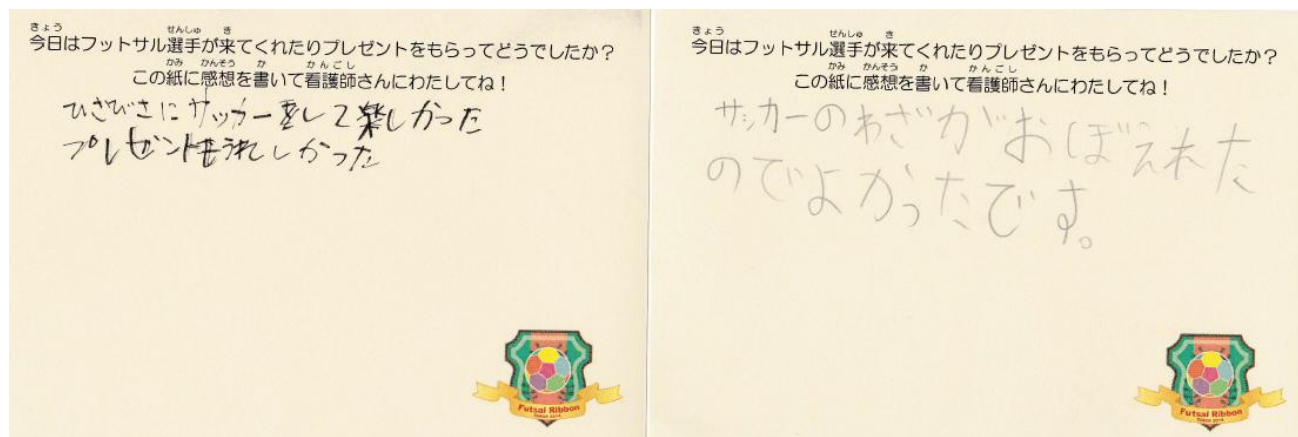 今日はフットサル選手が来てくれたりプレゼントをもらってどうでしたか？
この紙に感想を書いて看護師さんにわたしてね！
ひさびさにサッカーをして楽しかった
プレゼントもうれしかった
Futsal Ribbon
今日はフットサル選手が来てくれたりプレゼントをもらってどうでしたか？
この紙に感想を書いて看護師さんにわたしてね！
サッカーのわざがおぼえれた
のでよかったです。
Futsal Ribbon